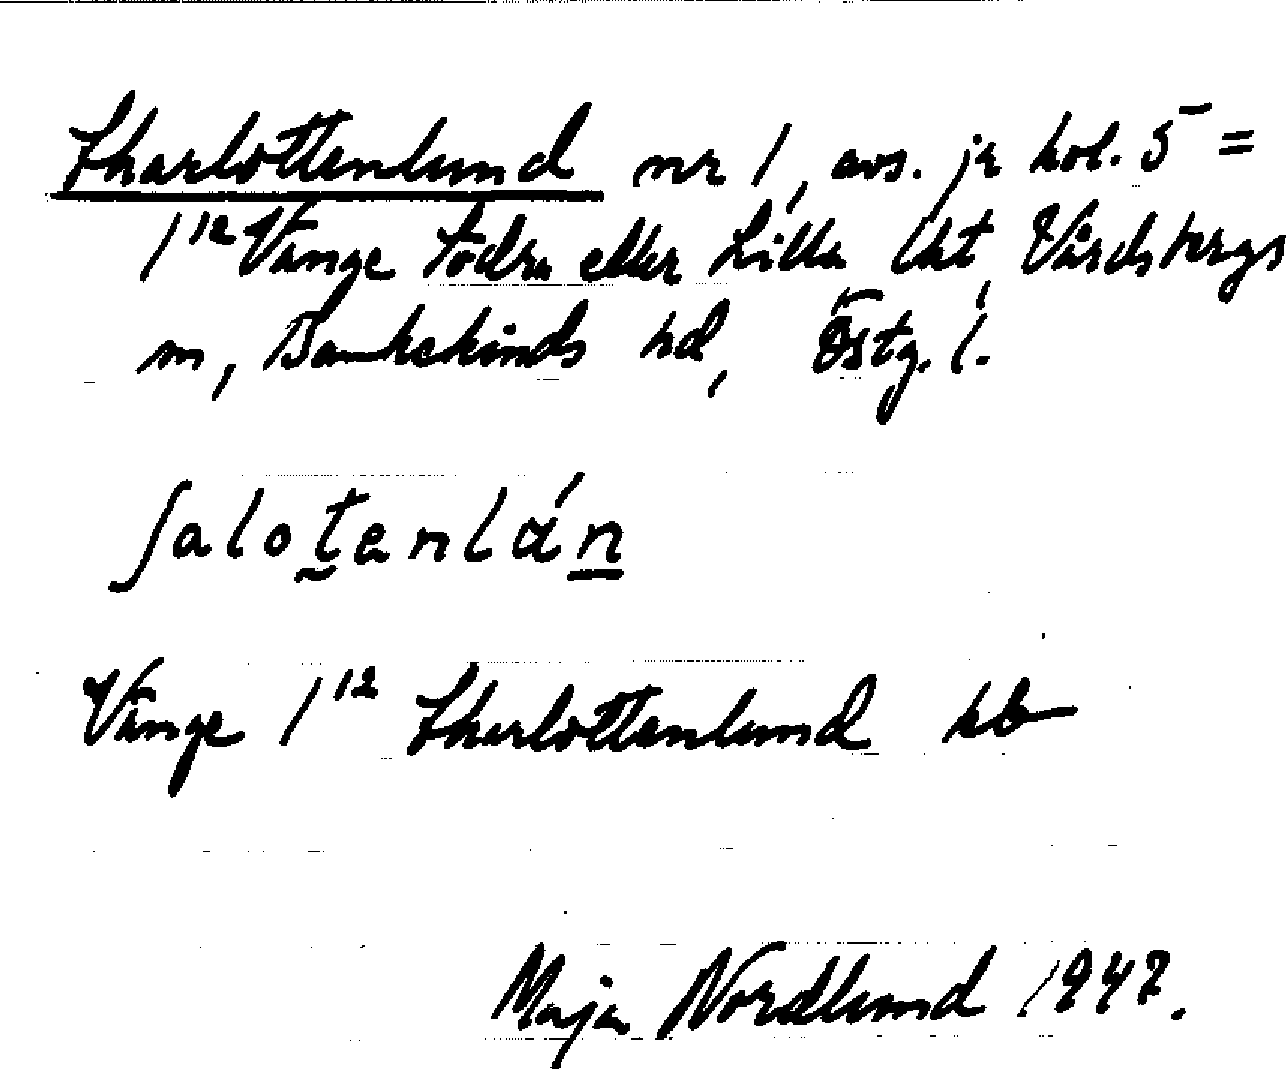 Charlottenlund nr 1, avs. jr kol. 5 =
1¹² Vänge Södra eller Lilla Utt, Vårdsbergs
sn, Bankekinds hd, Östg. l.
ʃalotenlán
Vänge 1¹² Charlottenlund hb
Maja Nordlund 1947.